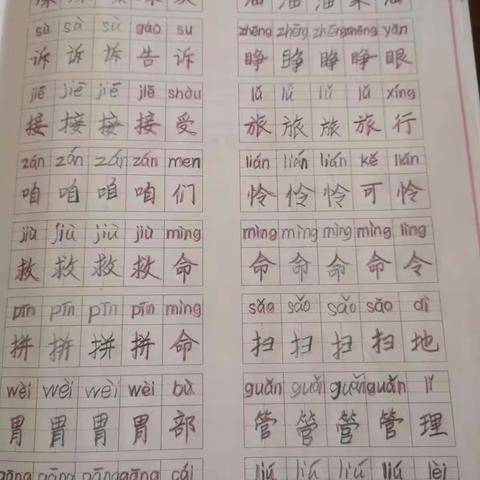 sù sù sù gào su
诉 诉 诉 告 诉
jiē jiē jiē jiē shòu
接 接 接 接 受
zán zán zán zán men
咱 咱 咱 咱 们
jiù jiù jiù jiù mìng
救 救 救 救 命
pīn pīn pīn pīn mìng
拼 拼 拼 拼 命
wèi wèi wèi wèi bù
胃 胃 胃 胃 部
zhēng zhēng zhēng zhēng yǎn
睁 睁 睁 睁 眼
lǚ lǚ lǚ lǚ xíng
旅 旅 旅 旅 行
lián lián lián kě lián
怜 怜 怜 可 怜
mìng mìng mìng mìng lìng
命 命 命 命 令
sǎo sǎo sǎo sǎo dì
扫 扫 扫 扫 地
guǎn guǎn guǎn guǎn lǐ
管 管 管 管 理